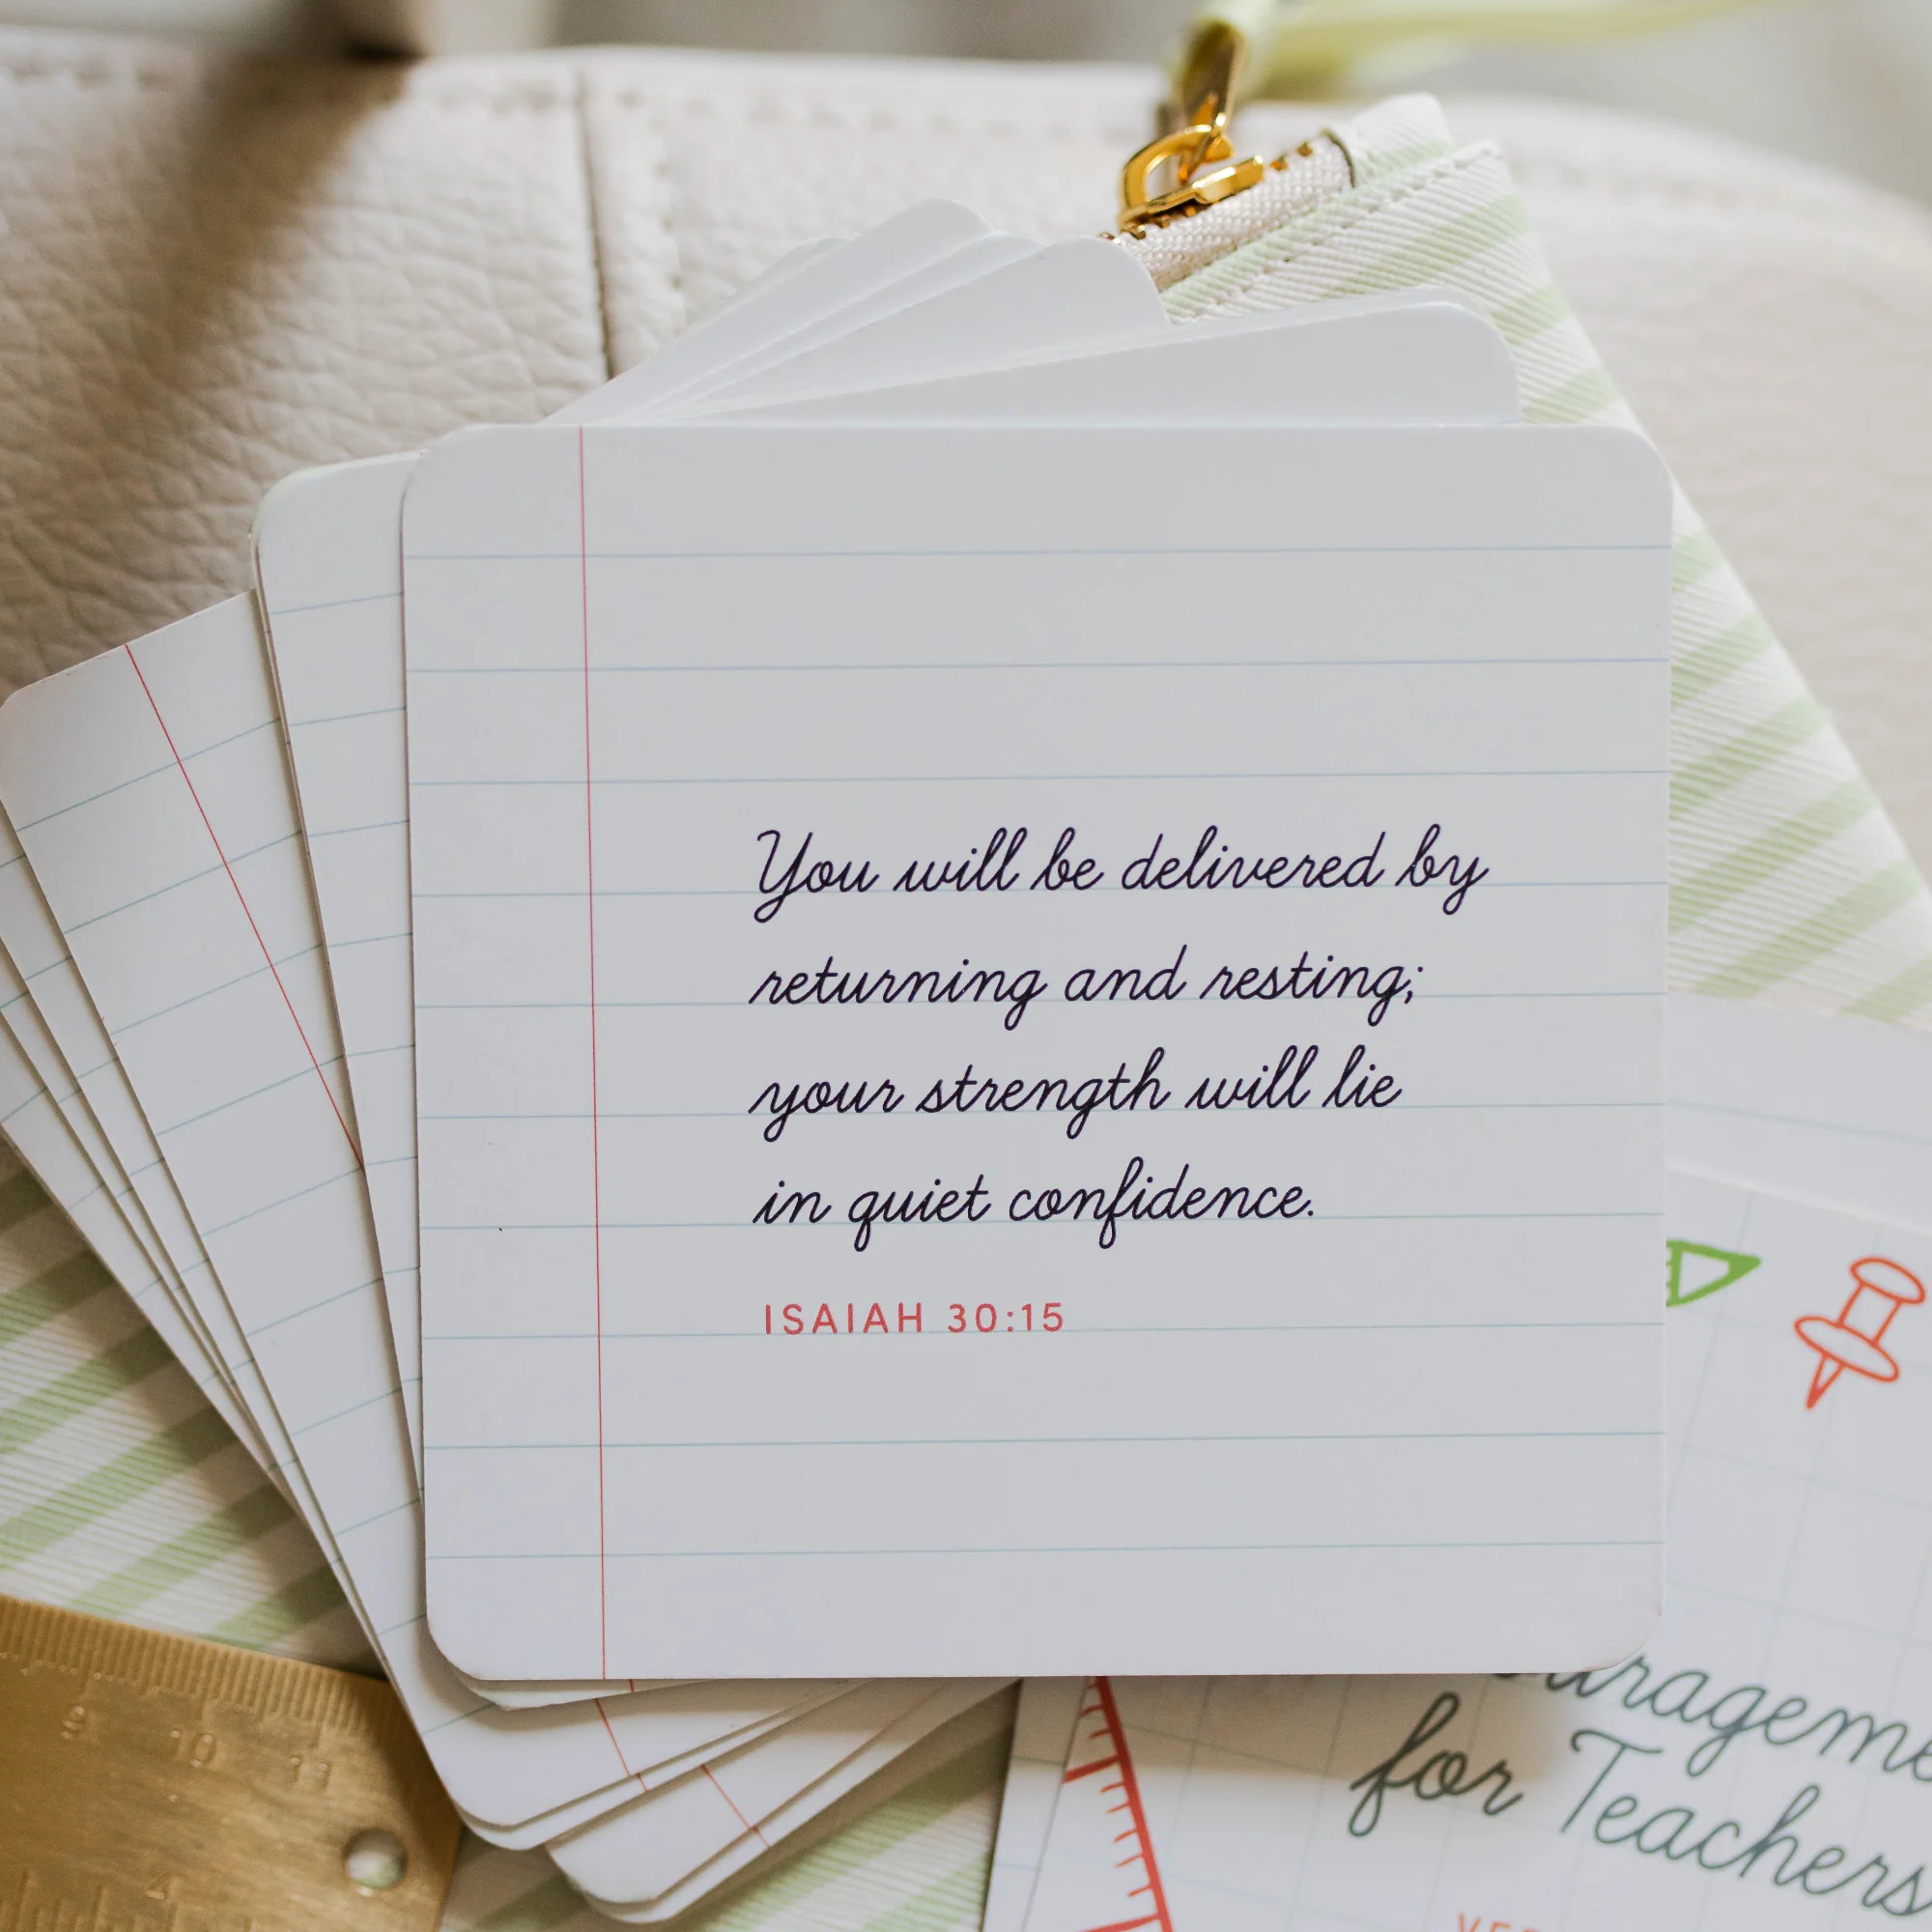 You will be delivered by
returning and resting;
your strength will lie
in quiet confidence.
ISAIAH 30:15
for Teachers
9 10 11
4